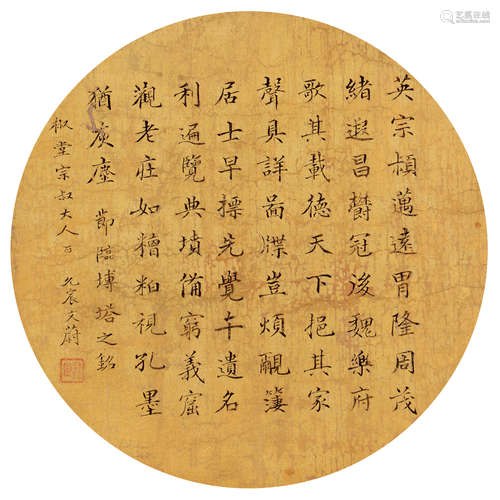 英宗穎邁遠冑隆周茂
緒遐昌鬱冠後魏樂府
歌其載德天下挹其家
聲具詳啚牒豈煩覶
居士早標先覺夲遺名
利遍覽典墳備窮義窟
觀老莊如糟粕視孔墨
猶灰塵 節臨塼塔之銘
椒堂宗叔大人 文蔚
艺狐在线